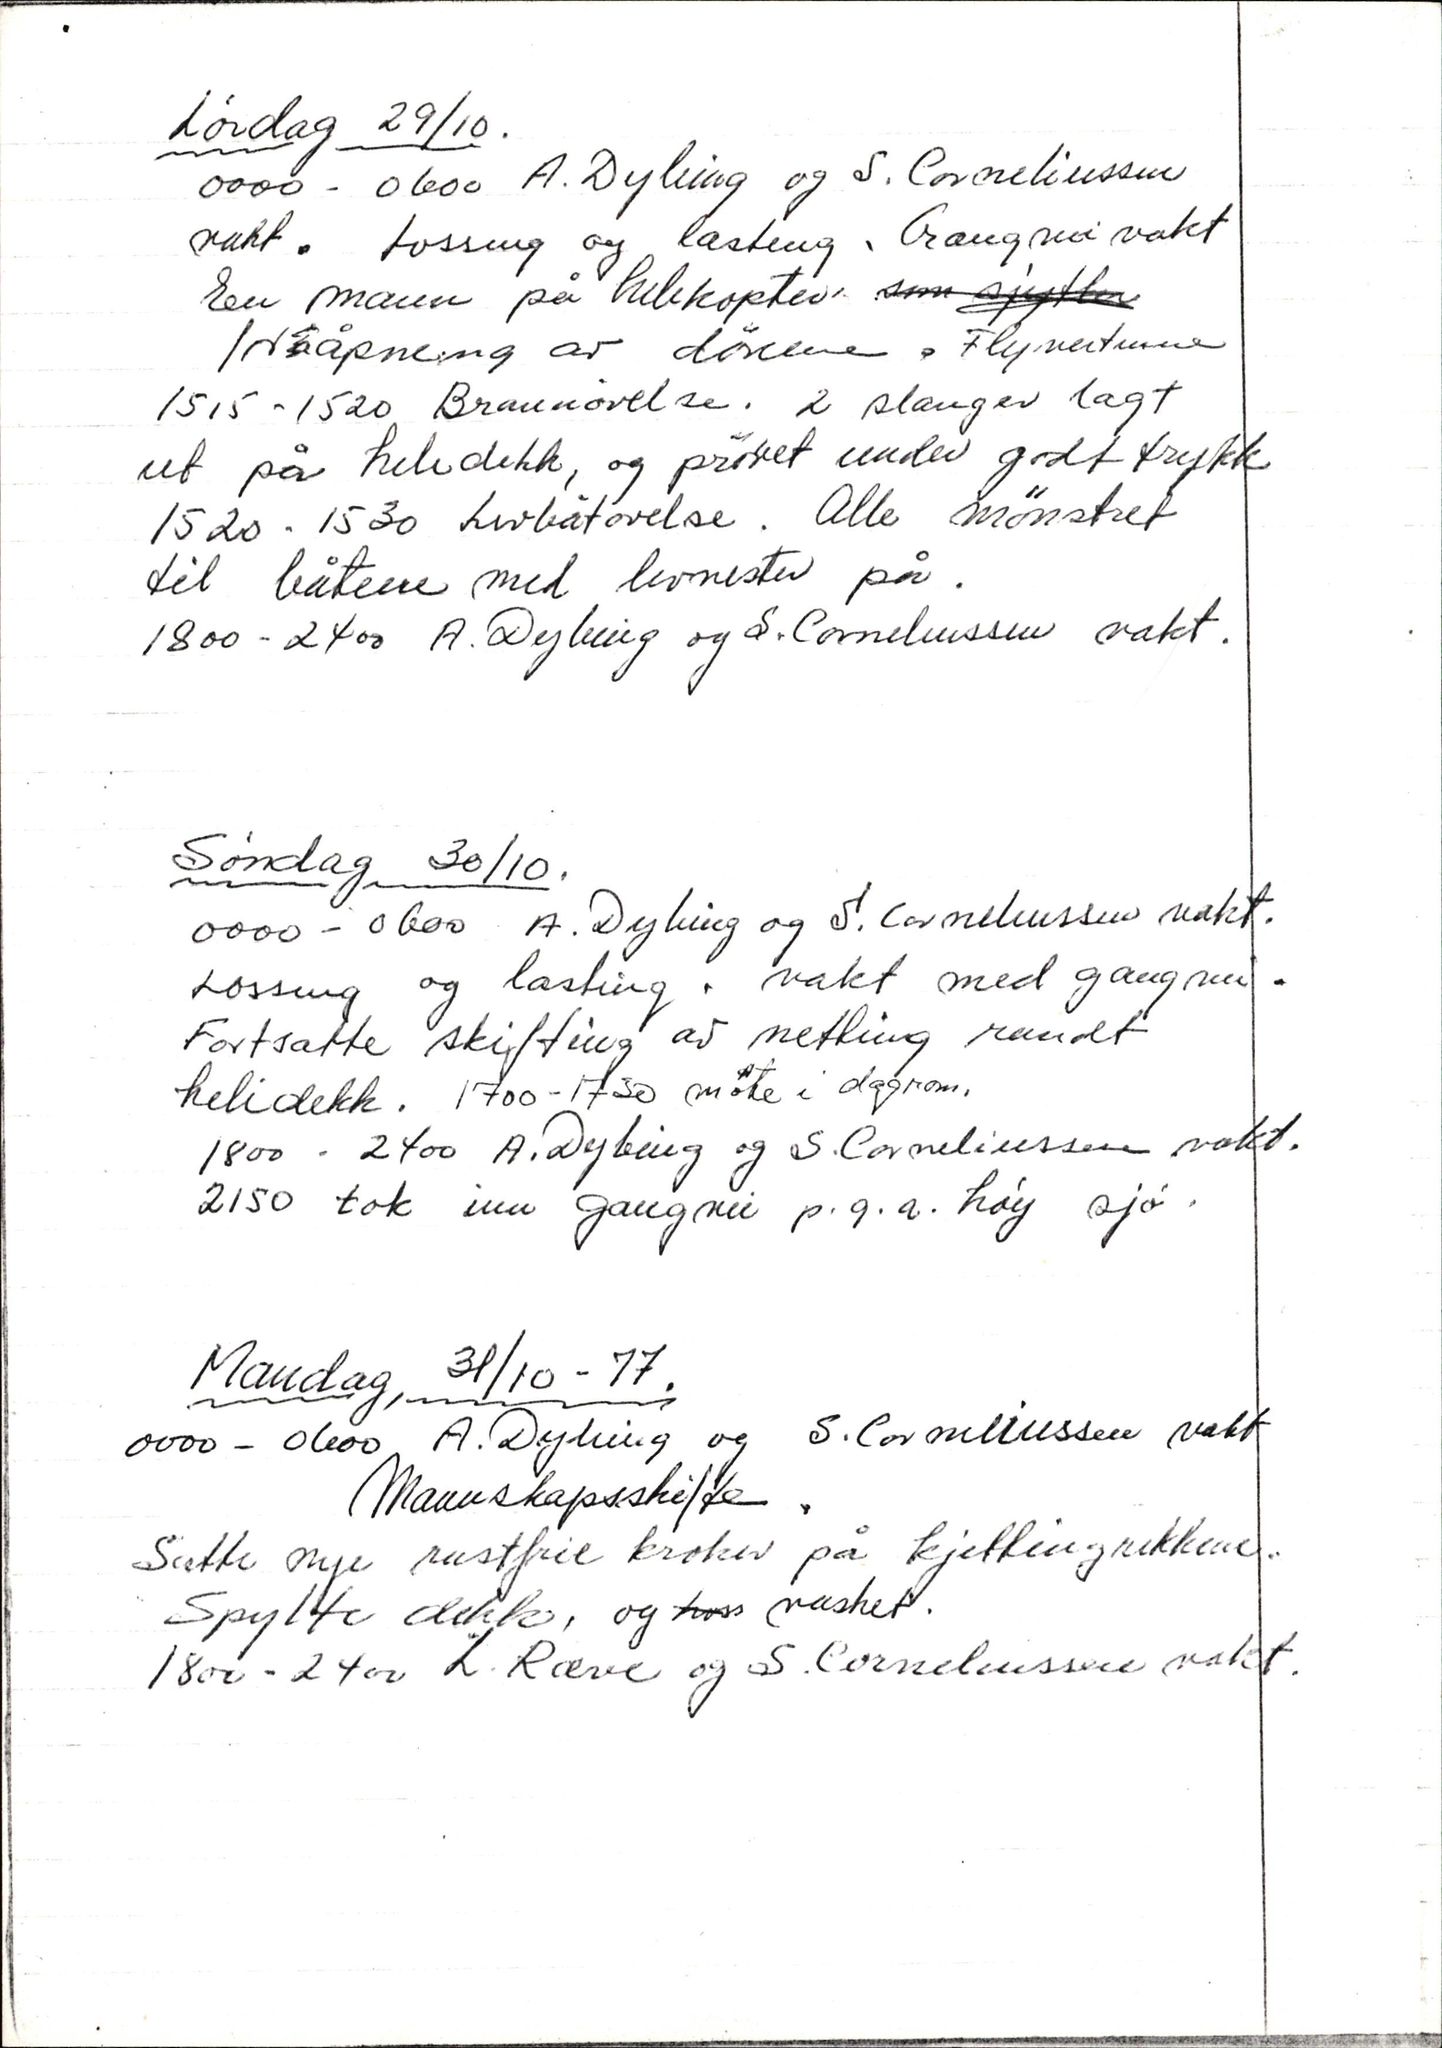 Lördag 29/10.
0000 - 0600 A. Dybing og S. Corneliussen
vakt. Lossing og lasting. Gangvei vakt
En mann på helikopter som
åpning av dörene. Flyvertinne
1515 - 1520 Brannövelse. 2 slanger lagt
ut på helidekk, og prövet under godt trykk
1520 - 1530 Livbåtövelse. Alle mönstret
til båtene med livvester på.
1800 - 2400 A. Dybing og S. Corneliussen vakt.
Söndag 30/10.
0000 - 0600 A. Dybing og S. Corneliussen vakt.
Lossing og lasting. vakt med gangvei.
Fortsatte skifting av netting rundt
helidekk. 1700 - 1730 möte i dagrom.
1800 - 2400 A. Dybing og S. Corneliussen vakt.
2150 tok inn gangvei p.g.a. höy sjö.
Mandag, 31/10 - 77.
0000 - 0600 A. Dybing og S. Corneliussen vakt
Mannskapsskifte.
Satte nye rustfrie kroker på kjettingrekkene.
Spylte dekk, og vasket.
1800 - 2400 L. Ræve og S. Corneliussen vakt.